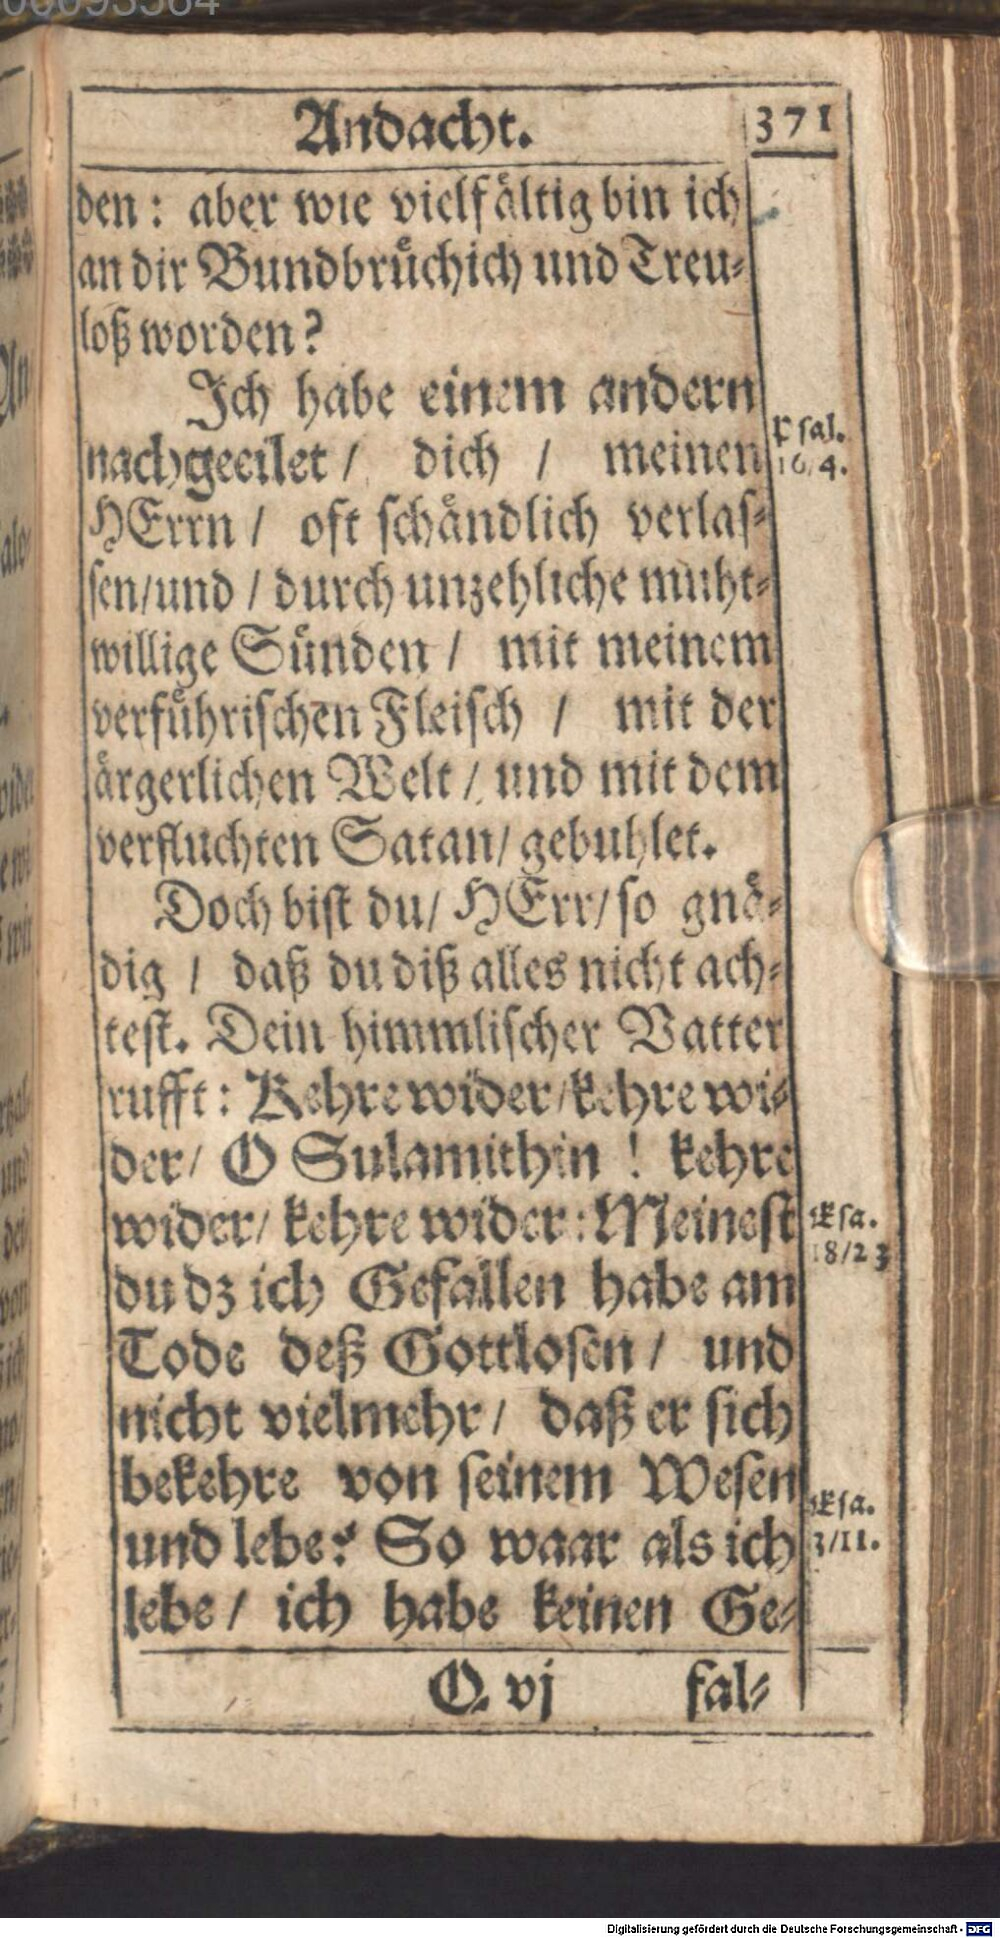 Andacht. 371
den: aber wie vielfältig bin ich
an dir Bundbrüchich und Treu⸗
loß worden?
Ich habe einem andern
nachgeeilet / dich / meinen
HErrn / oft schändlich verlas⸗
sen/und / durch unzehliche muht⸗
willige Sünden / mit meinem
verführischen Fleisch / mit der
ärgerlichen Welt / und mit dem
verfluchten Satan/ gebuhlet.
Doch bist du/ HErr/ so gnä⸗
dig / daß du diß alles nicht ach⸗
test. Dein himmlischer Vatter
rufft: Kehre wider/kehre wi⸗
der/ O Sulamithin ! kehre
wider/ kehre wider: Meinest
du dz ich Gefallen habe am
Tode deß Gottlosen / und
nicht vielmehr / daß er sich
bekehre von seinem Wesen
und lebe? So waar als ich
lebe / ich habe keinen Ge⸗
Q vj fal⸗
Psal.
16/4.
18/23
3/11.
Digitalisierung gefördert durch die Deutsche Forschungsgemeinschaft - DFG